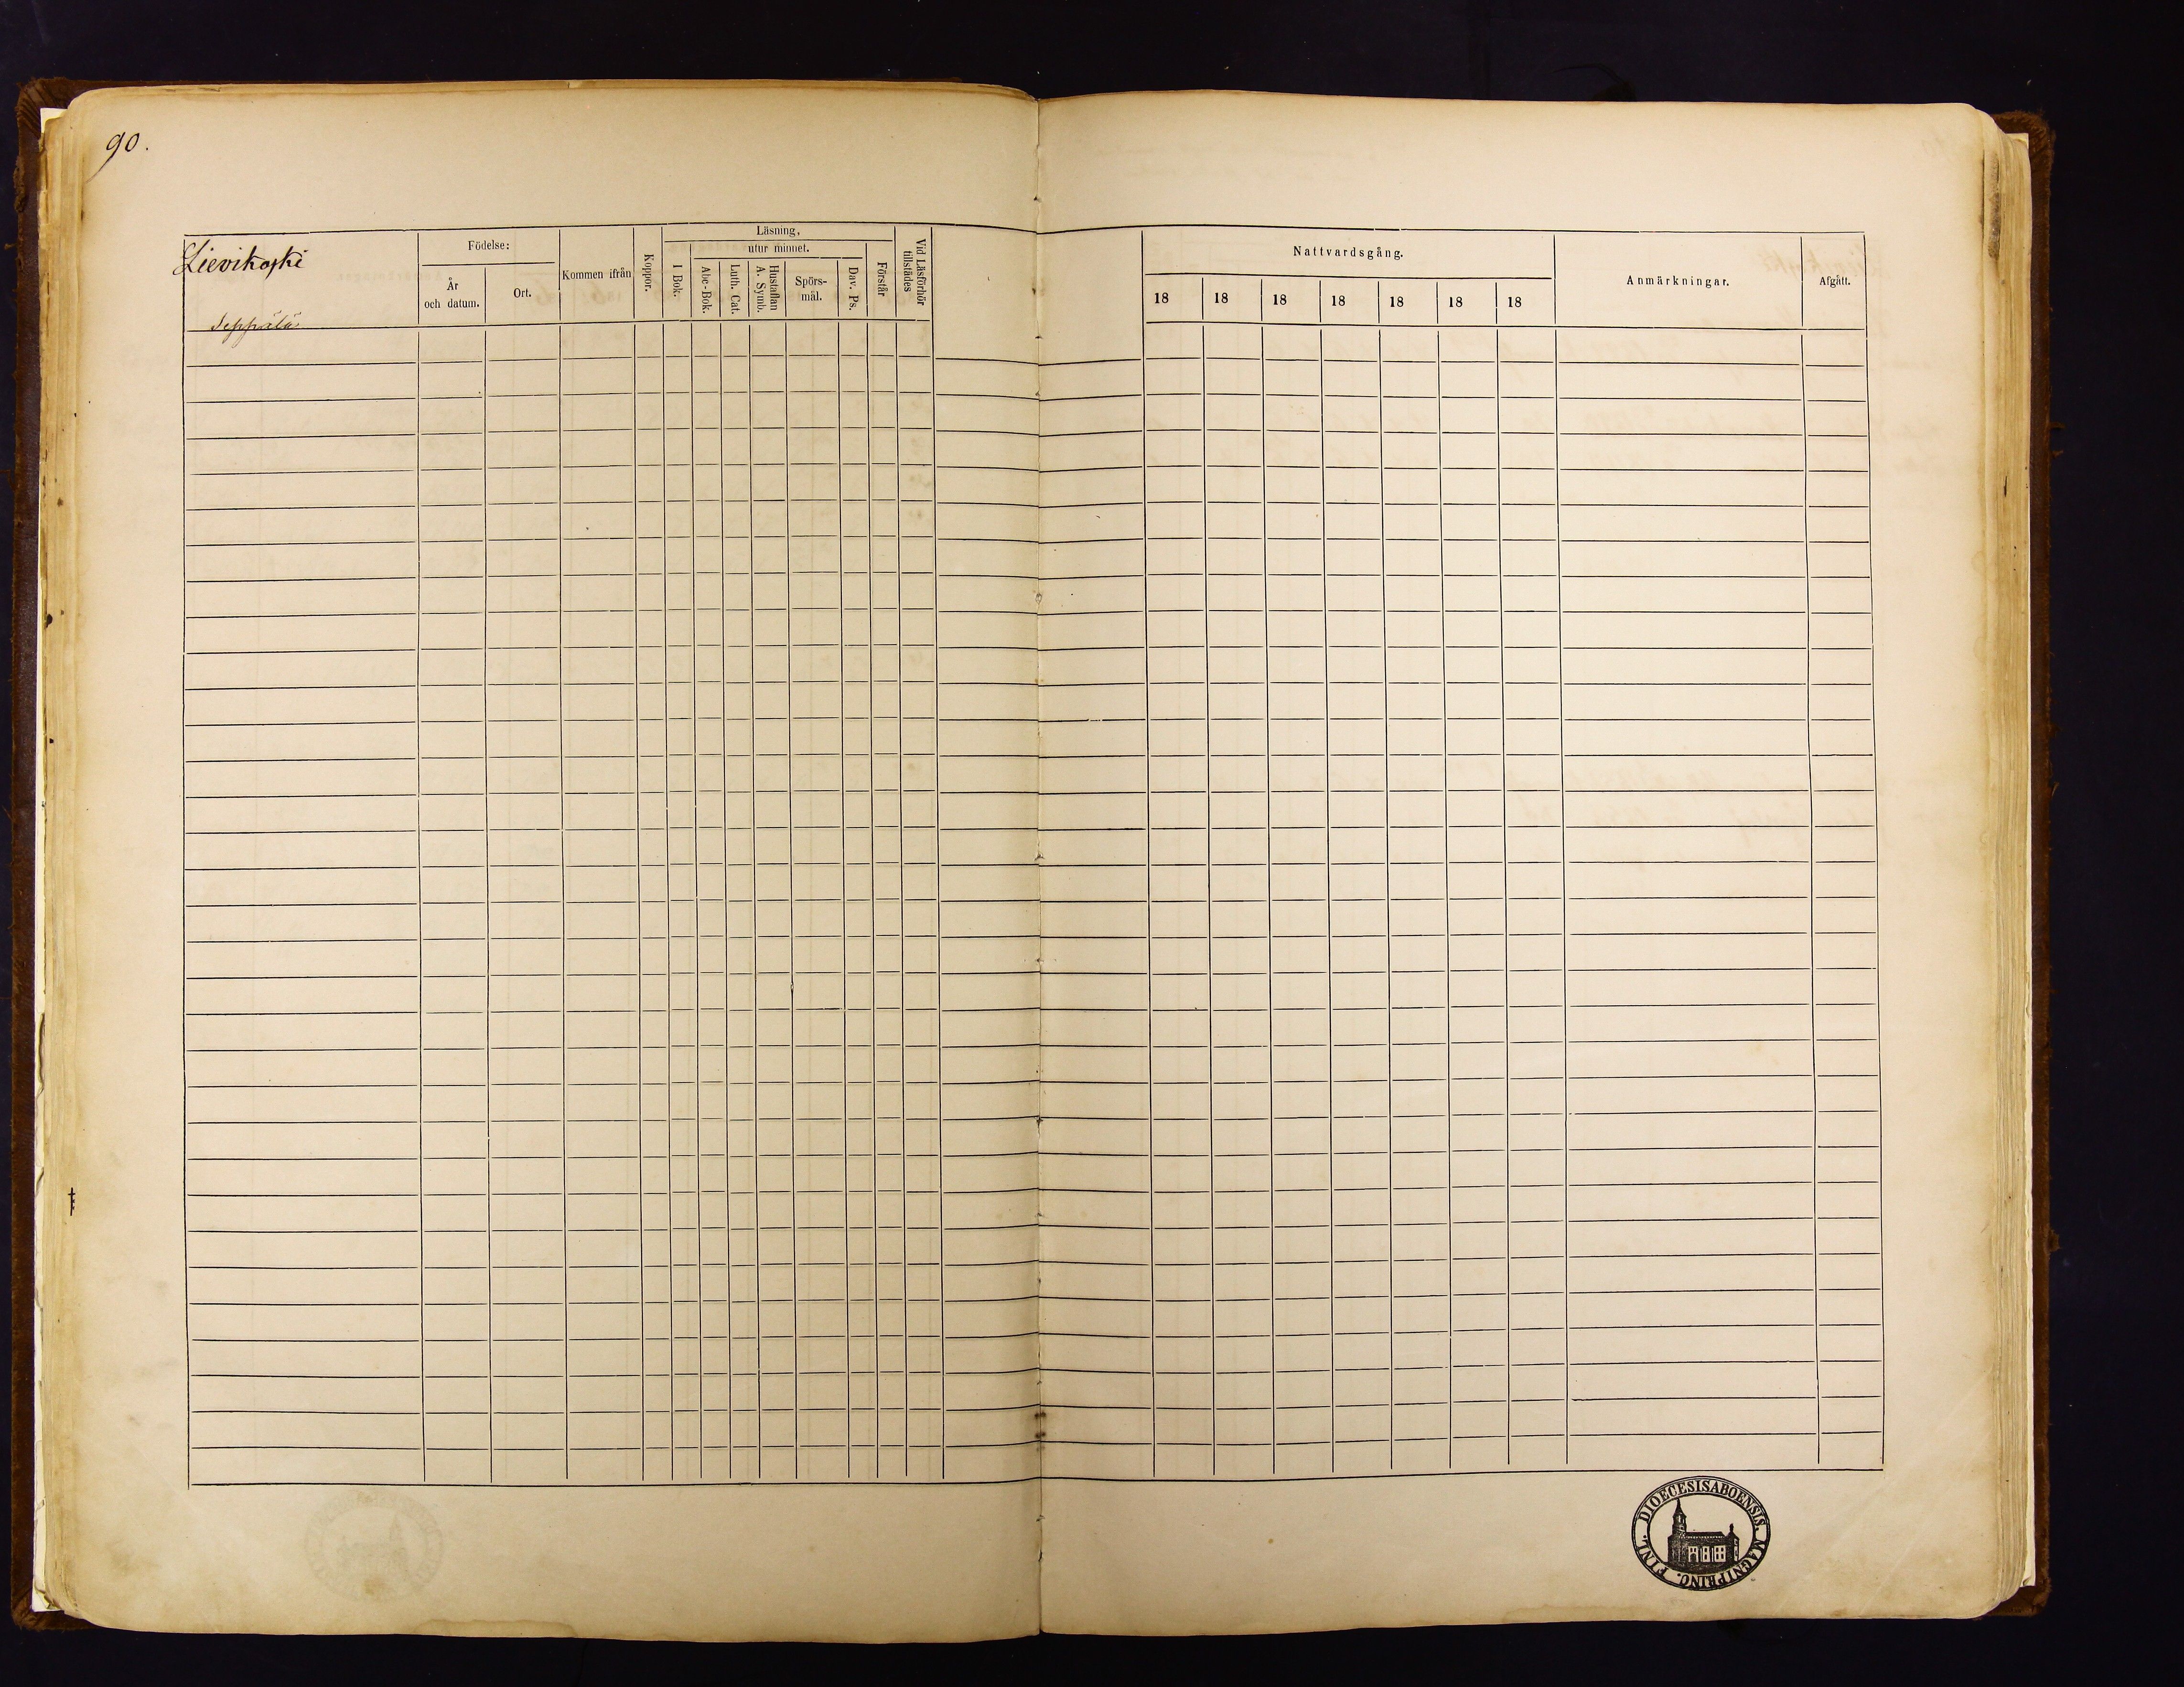 90.
Lievikoski
Seppälä
Födelse:
År
och datum.
Ort.
Kommen ifrån
Koppor.
Läsning,
I Bok.
utur minnet.
Abc-Bok.
Luth. Cat.
Hustaflan
A. Symb.
Spörs-
mål.
Dav. Ps.
Förstår
Vid Läsförhör
tillstädes
Nattvardsgång.
18 18 18 18 18 18 18
Anmärkningar.
Afgått.
DIOECESISABOENSIS. MAGNIPRINC. FINL.